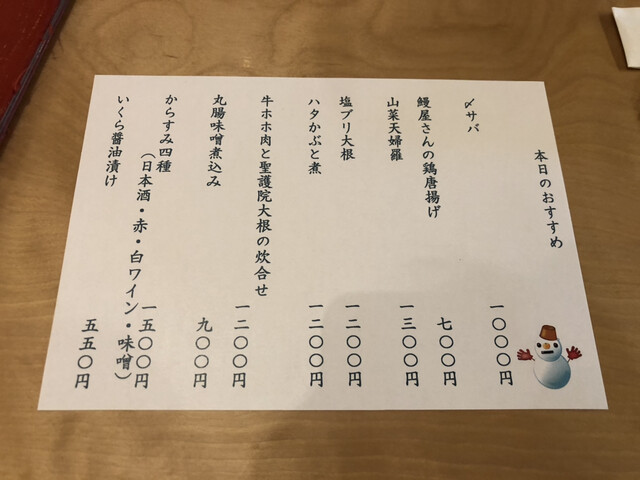 本日のおすすめ
〆サバ 一〇〇〇円
鰻屋さんの鶏唐揚げ 七〇〇円
山菜天婦羅 一三〇〇円
塩ブリ大根 一二〇〇円
ハタかぶと煮 一二〇〇円
牛ホホ肉と聖護院大根の炊合せ 一二〇〇円
丸腸味噌煮込み 九〇〇円
からすみ四種 一五〇〇円
（日本酒・赤・白ワイン・味噌）
いくら醤油漬け 五五〇円